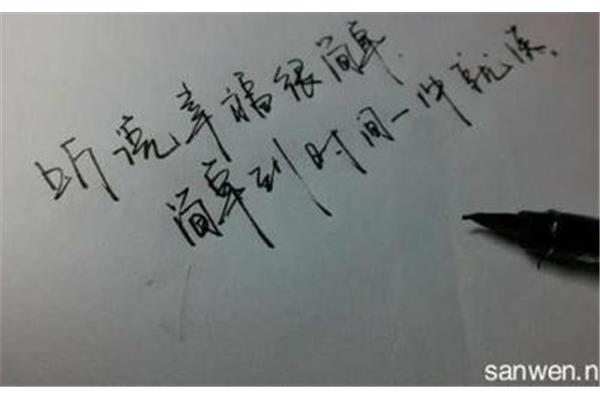 听说幸福很简单.
简单到时间一冲就淡.
sanwen.n